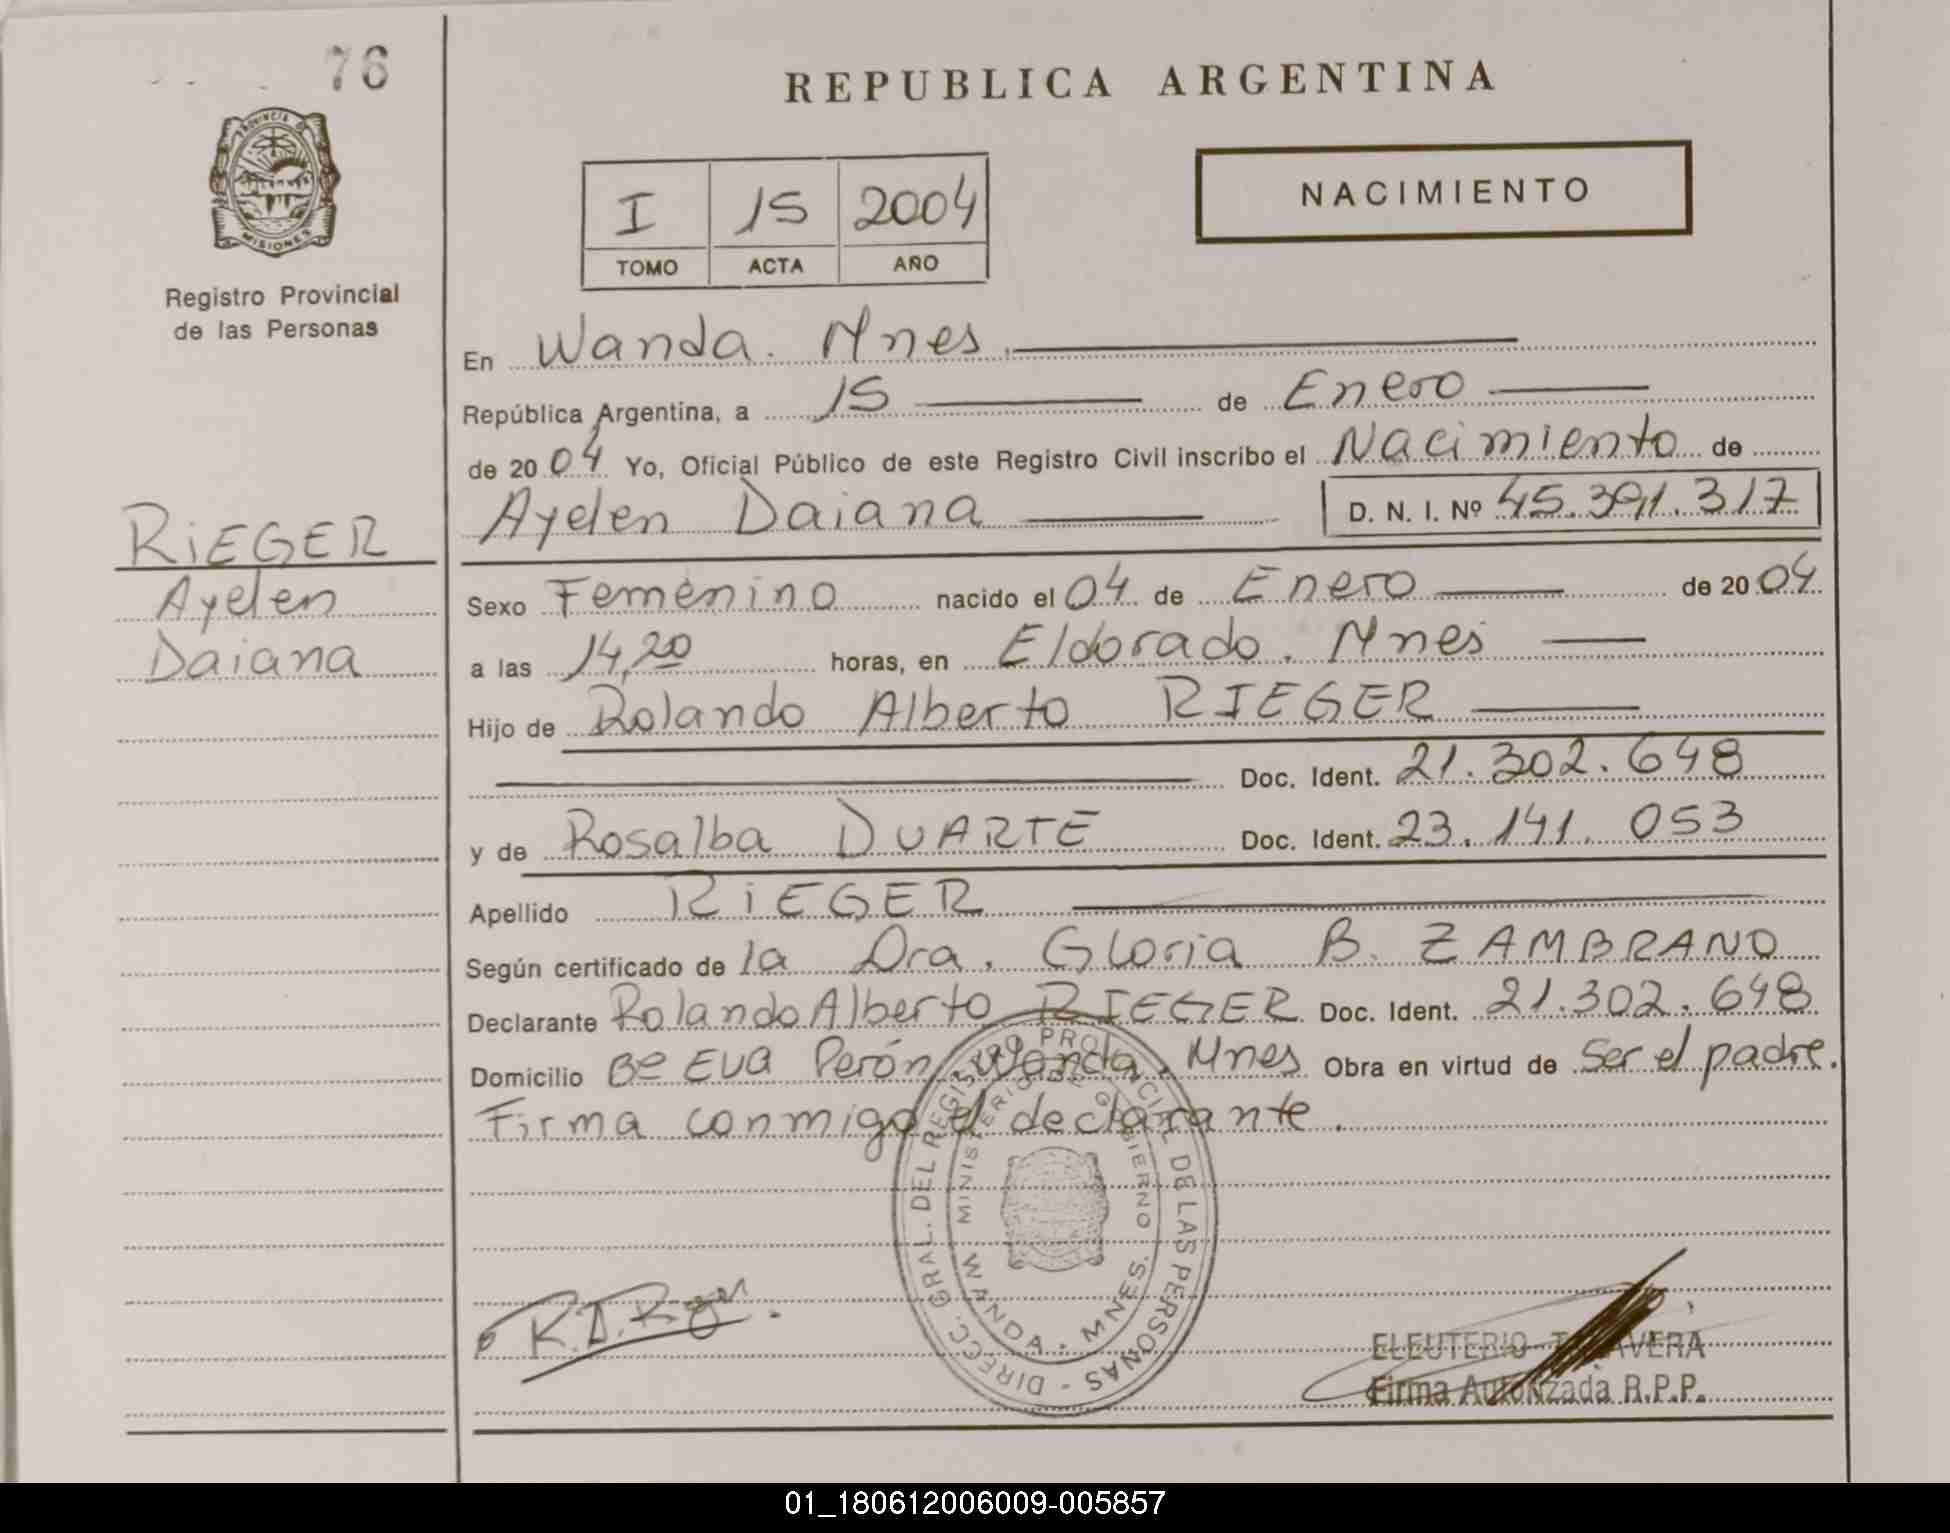 76
REPUBLICA ARGENTINA
PROVINCIA D
MISIONES
Registro Provincial
de las Personas
NACIMIENTO
I 15 2004
TOMO ACTA AÑO
En Wanda. Mnes.
República Argentina, a 15 de Enero
de 2004 Yo, Oficial Público de este Registro Civil inscribo el Nacimiento de
Ayelen Daiana D. N. I. Nº 45.391.317
RiEGER
Ayelen
Daiana
Sexo Femenino nacido el 04 de Enero de 2004
a las 14,20 horas, en Eldorado. Mnes
Hijo de Rolando Alberto RIEGER
Doc. Ident. 21.302.648
y de Rosalba DUARTE Doc. Ident. 23.141.053
Apellido RiEGER
Según certificado de la Dra. Gloria B. ZAMBRANO
Declarante Rolando Alberto RIEGER Doc. Ident. 21.302.648
Domicilio Bº Eva Perón Wanda, Mnes Obra en virtud de ser el padre.
Firma conmigo el declarante.
DIRECC. GRAL. DEL REGISTRO PROVINCIAL DE LAS PERSONAS -
MINISTERIO DE GOBIERNO
WANDA - MNES.
ELEUTERIO
Firma Autorizada R.P.P.
01_180612006009-005857